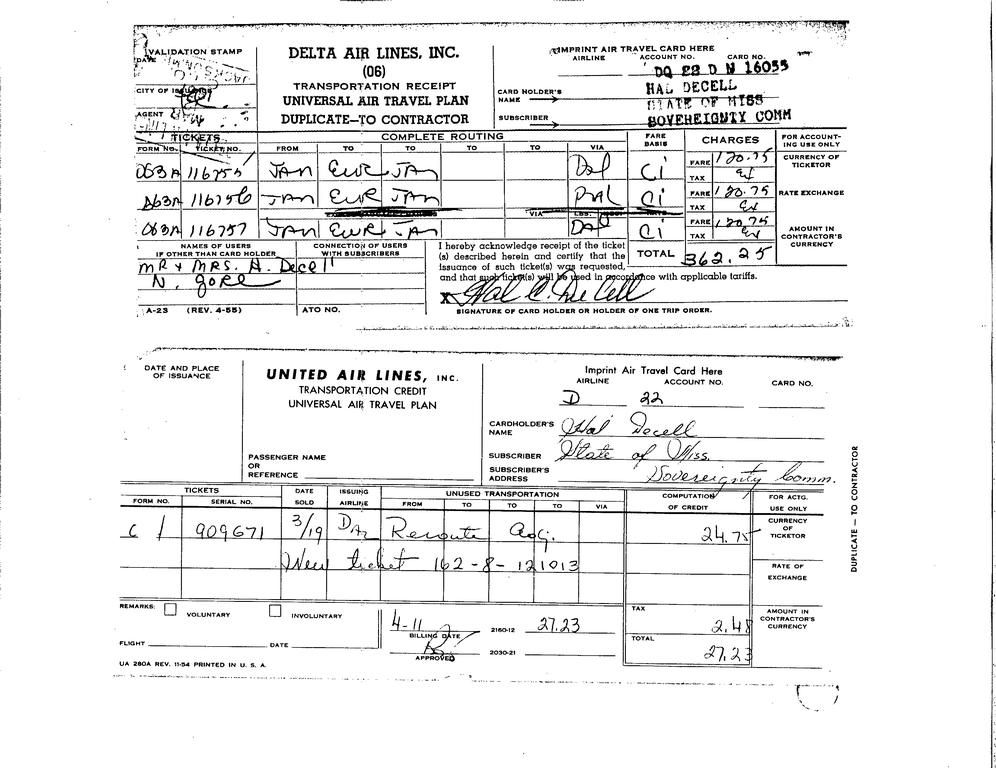 VALIDATION STAMP
DATE
CITY OF
AGENT
DELTA AIR LINES, INC.
(06)
TRANSPORTATION RECEIPT
UNIVERSAL AIR TRAVEL PLAN
DUPLICATE—TO CONTRACTOR
IMPRINT AIR TRAVEL CARD HERE
AIRLINE ACCOUNT NO. CARD NO.
DQ 22 D N 16055
CARD HOLDER'S NAME HAL DECELL
STATE OF MISS
SUBSCRIBER SOVEREIGNTY COMM
TICKETS COMPLETE ROUTING FARE BASIS CHARGES FOR ACCOUNTING USE ONLY
FORM NO. TICKET NO. FROM TO TO TO TO TO VIA
063A 116755 JAN EWR JAN Dal Ci FARE 120.75 CURRENCY OF TICKETOR
TAX Ex
063A 116756 JAN EWR JAN DAL Ci FARE 120.75 RATE EXCHANGE
TAX Ex
063A 116757 JAN EWR JAN Dal Ci FARE 120.75 AMOUNT IN CONTRACTOR'S CURRENCY
TAX Ex
NAMES OF USERS IF OTHER THAN CARD HOLDER
CONNECTION OF USERS WITH SUBSCRIBERS
MR & MRS. H. Decell
N. gore
I hereby acknowledge receipt of the ticket
(s) described herein and certify that the
issuance of such ticket(s) was requested,
and that such ticket(s) will be used in accordance with applicable tariffs.
TOTAL 362.25
X Hal C. DeCell
SIGNATURE OF CARD HOLDER OR HOLDER OF ONE TRIP ORDER.
A-23 (REV. 4-55) ATO NO.
DATE AND PLACE
OF ISSUANCE
UNITED AIR LINES, INC.
TRANSPORTATION CREDIT
UNIVERSAL AIR TRAVEL PLAN
PASSENGER NAME
OR
REFERENCE
Imprint Air Travel Card Here
AIRLINE ACCOUNT NO. CARD NO.
D 22
CARDHOLDER'S NAME Hal Decell
SUBSCRIBER State of Miss.
SUBSCRIBER'S ADDRESS Sovereignty Comm.
TICKETS DATE SOLD ISSUING AIRLINE UNUSED TRANSPORTATION COMPUTATION OF CREDIT FOR ACTG. USE ONLY
FORM NO. SERIAL NO. FROM TO TO TO VIA
C 1 909671 3/19 DAL Reroute Adj. 24.75 CURRENCY OF TICKETOR
New ticket 162-8-121013 RATE OF EXCHANGE
REMARKS: VOLUNTARY INVOLUNTARY
FLIGHT DATE
4-11 BILLING DATE 2160-12 27.23
APPROVED 2030-21
TAX 2.48
TOTAL 27.23
AMOUNT IN CONTRACTOR'S CURRENCY
UA 280A REV. 11-54 PRINTED IN U. S. A.
DUPLICATE — TO CONTRACTOR